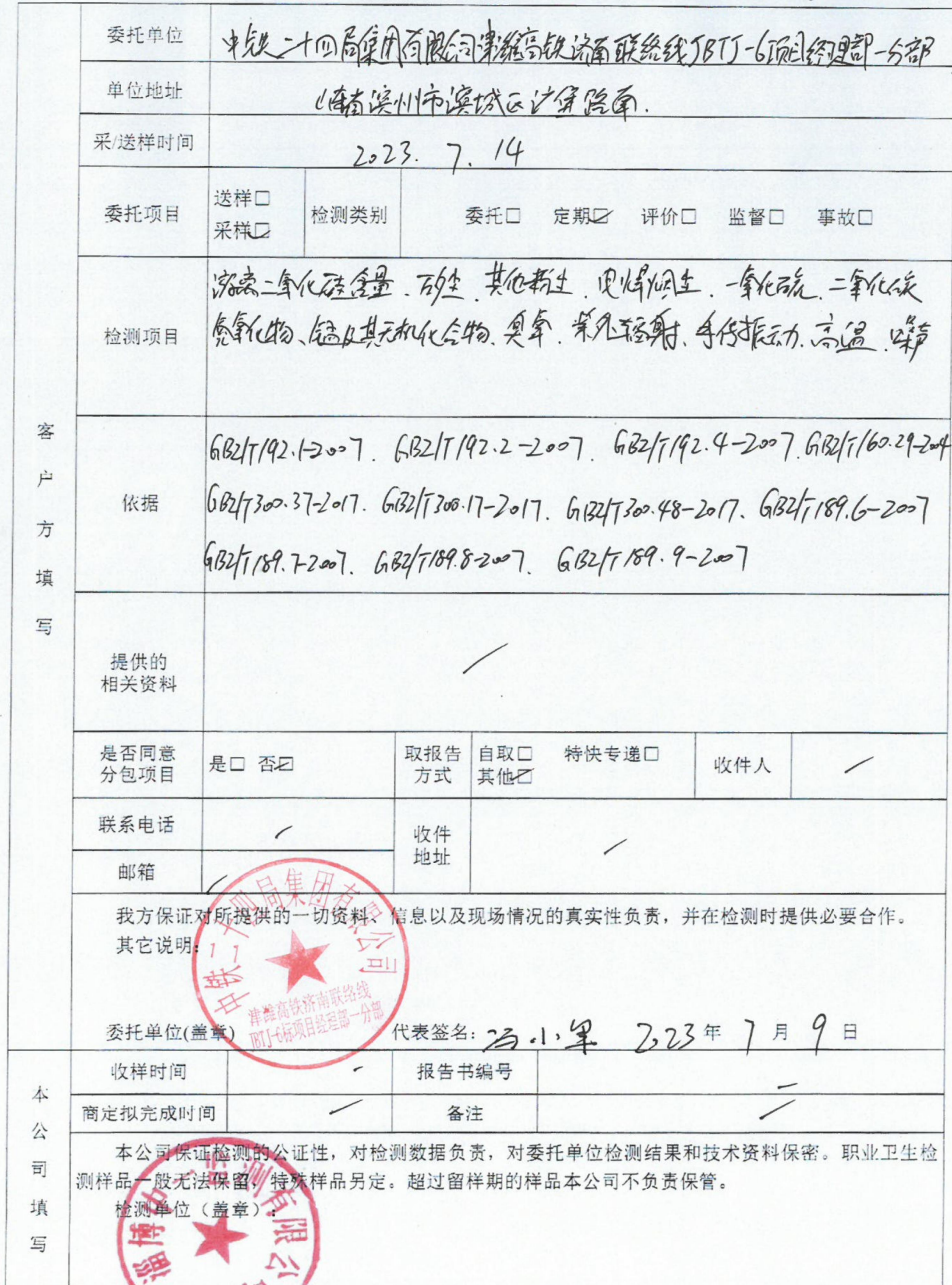 委托单位 中铁二十四局集团有限公司津潍高铁济南联络线JBTJ-6项目经理部一分部
单位地址 山东省滨州市滨城区 路南.
采/送样时间 2023. 7. 14
委托项目 送样□ 采样☑ 检测类别 委托□ 定期☑ 评价□ 监督□ 事故□
检测项目 游离二氧化硅含量、矽尘、其他粉尘、电焊烟尘、一氧化碳、二氧化碳
氮氧化物、锰及其无机化合物、臭氧、紫外辐射、手传振动、高温、噪声
客户方填写
依据 GBZ/T192.1-2007、GBZ/T192.2-2007、GBZ/T192.4-2007、GBZ/T160.29-2004
GBZ/T300.37-2017、GBZ/T300.17-2017、GBZ/T300.48-2017、GBZ/T189.6-2007
GBZ/T189.7-2007、GBZ/T189.8-2007、GBZ/T189.9-2007
提供的相关资料 /
是否同意分包项目 是□ 否☑ 取报告方式 自取□ 特快专递□ 其他☑ 收件人 /
联系电话 / 收件地址 /
邮箱 /
我方保证对所提供的一切资料、信息以及现场情况的真实性负责，并在检测时提供必要合作。
其它说明：
中铁二十四局集团有限公司
津潍高铁济南联络线
JBTJ-6标项目经理部一分部
委托单位(盖章) 代表签名：冯小军 2023年 7月 9日
本公司填写
收样时间 - 报告书编号 -
商定拟完成时间 / 备注 /
本公司保证检测的公证性，对检测数据负责，对委托单位检测结果和技术资料保密。职业卫生检
测样品一般无法保留，特殊样品另定。超过留样期的样品本公司不负责保管。
检测单位（盖章）：
淄博 检测有限公